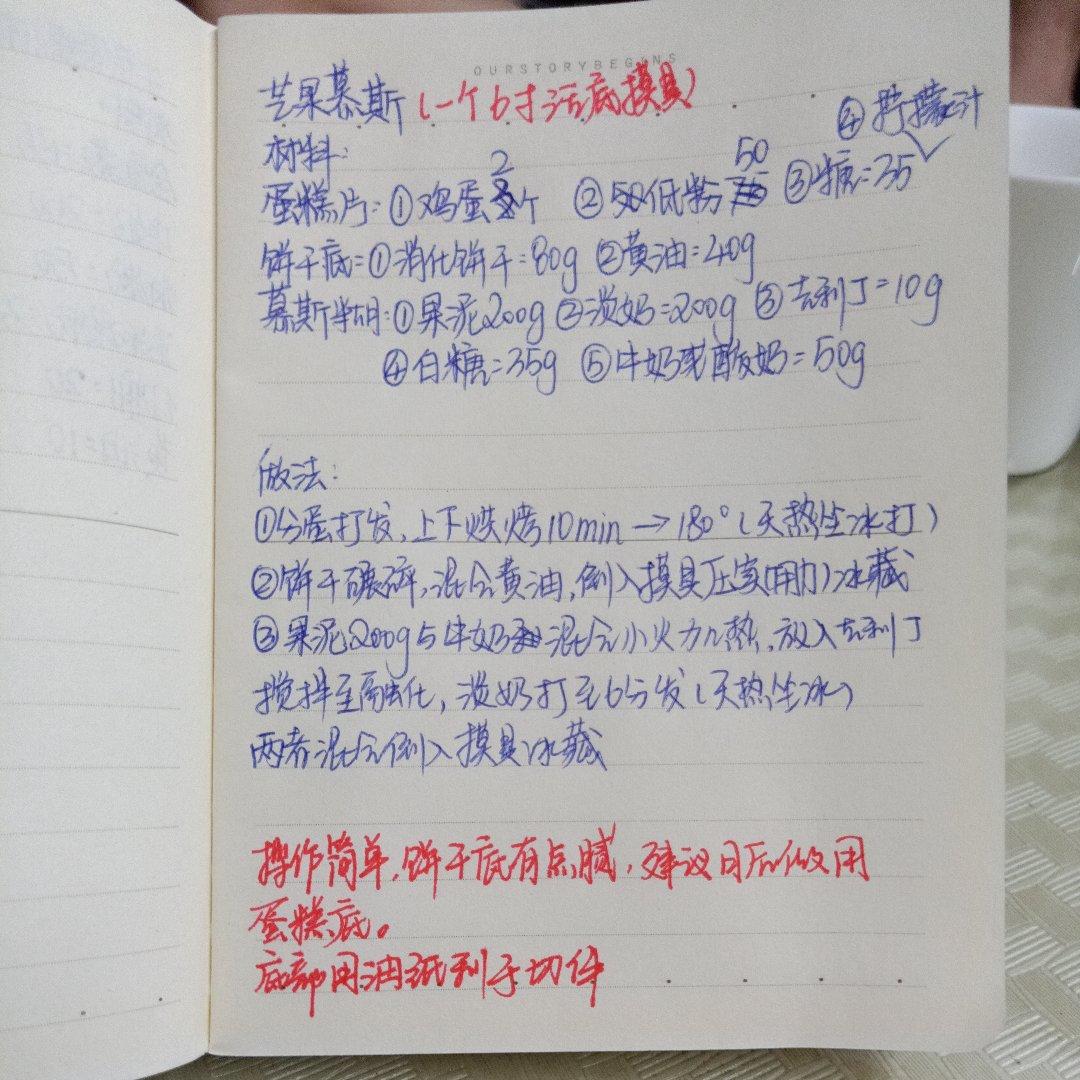 OURSTORYBEGUNS
芒果慕斯(一个6寸活底摸具)
④柠檬汁
材料:
蛋糕片:①鸡蛋2个 ②50低粉50 ③糖=35
饼干底=①消化饼干=80g ②黄油=40g
慕斯糊:①果泥200g ②淡奶=200g ③吉利丁=10g
④白糖=35g ⑤牛奶或酸奶=50g
做法:
①分蛋打发,上下烘烤10min→180°(天热坐冰打)
②饼干碾碎,混合黄油,倒入摸具压实(用力)冰藏
③果泥200g与牛奶混合小火加热,放入吉利丁
搅拌至融化,淡奶打至6分发(天热坐冰)
两者混合倒入摸具冰藏
操作简单,饼干底有点腻,建议日后做用
蛋糕底。
底部用油纸利于切件